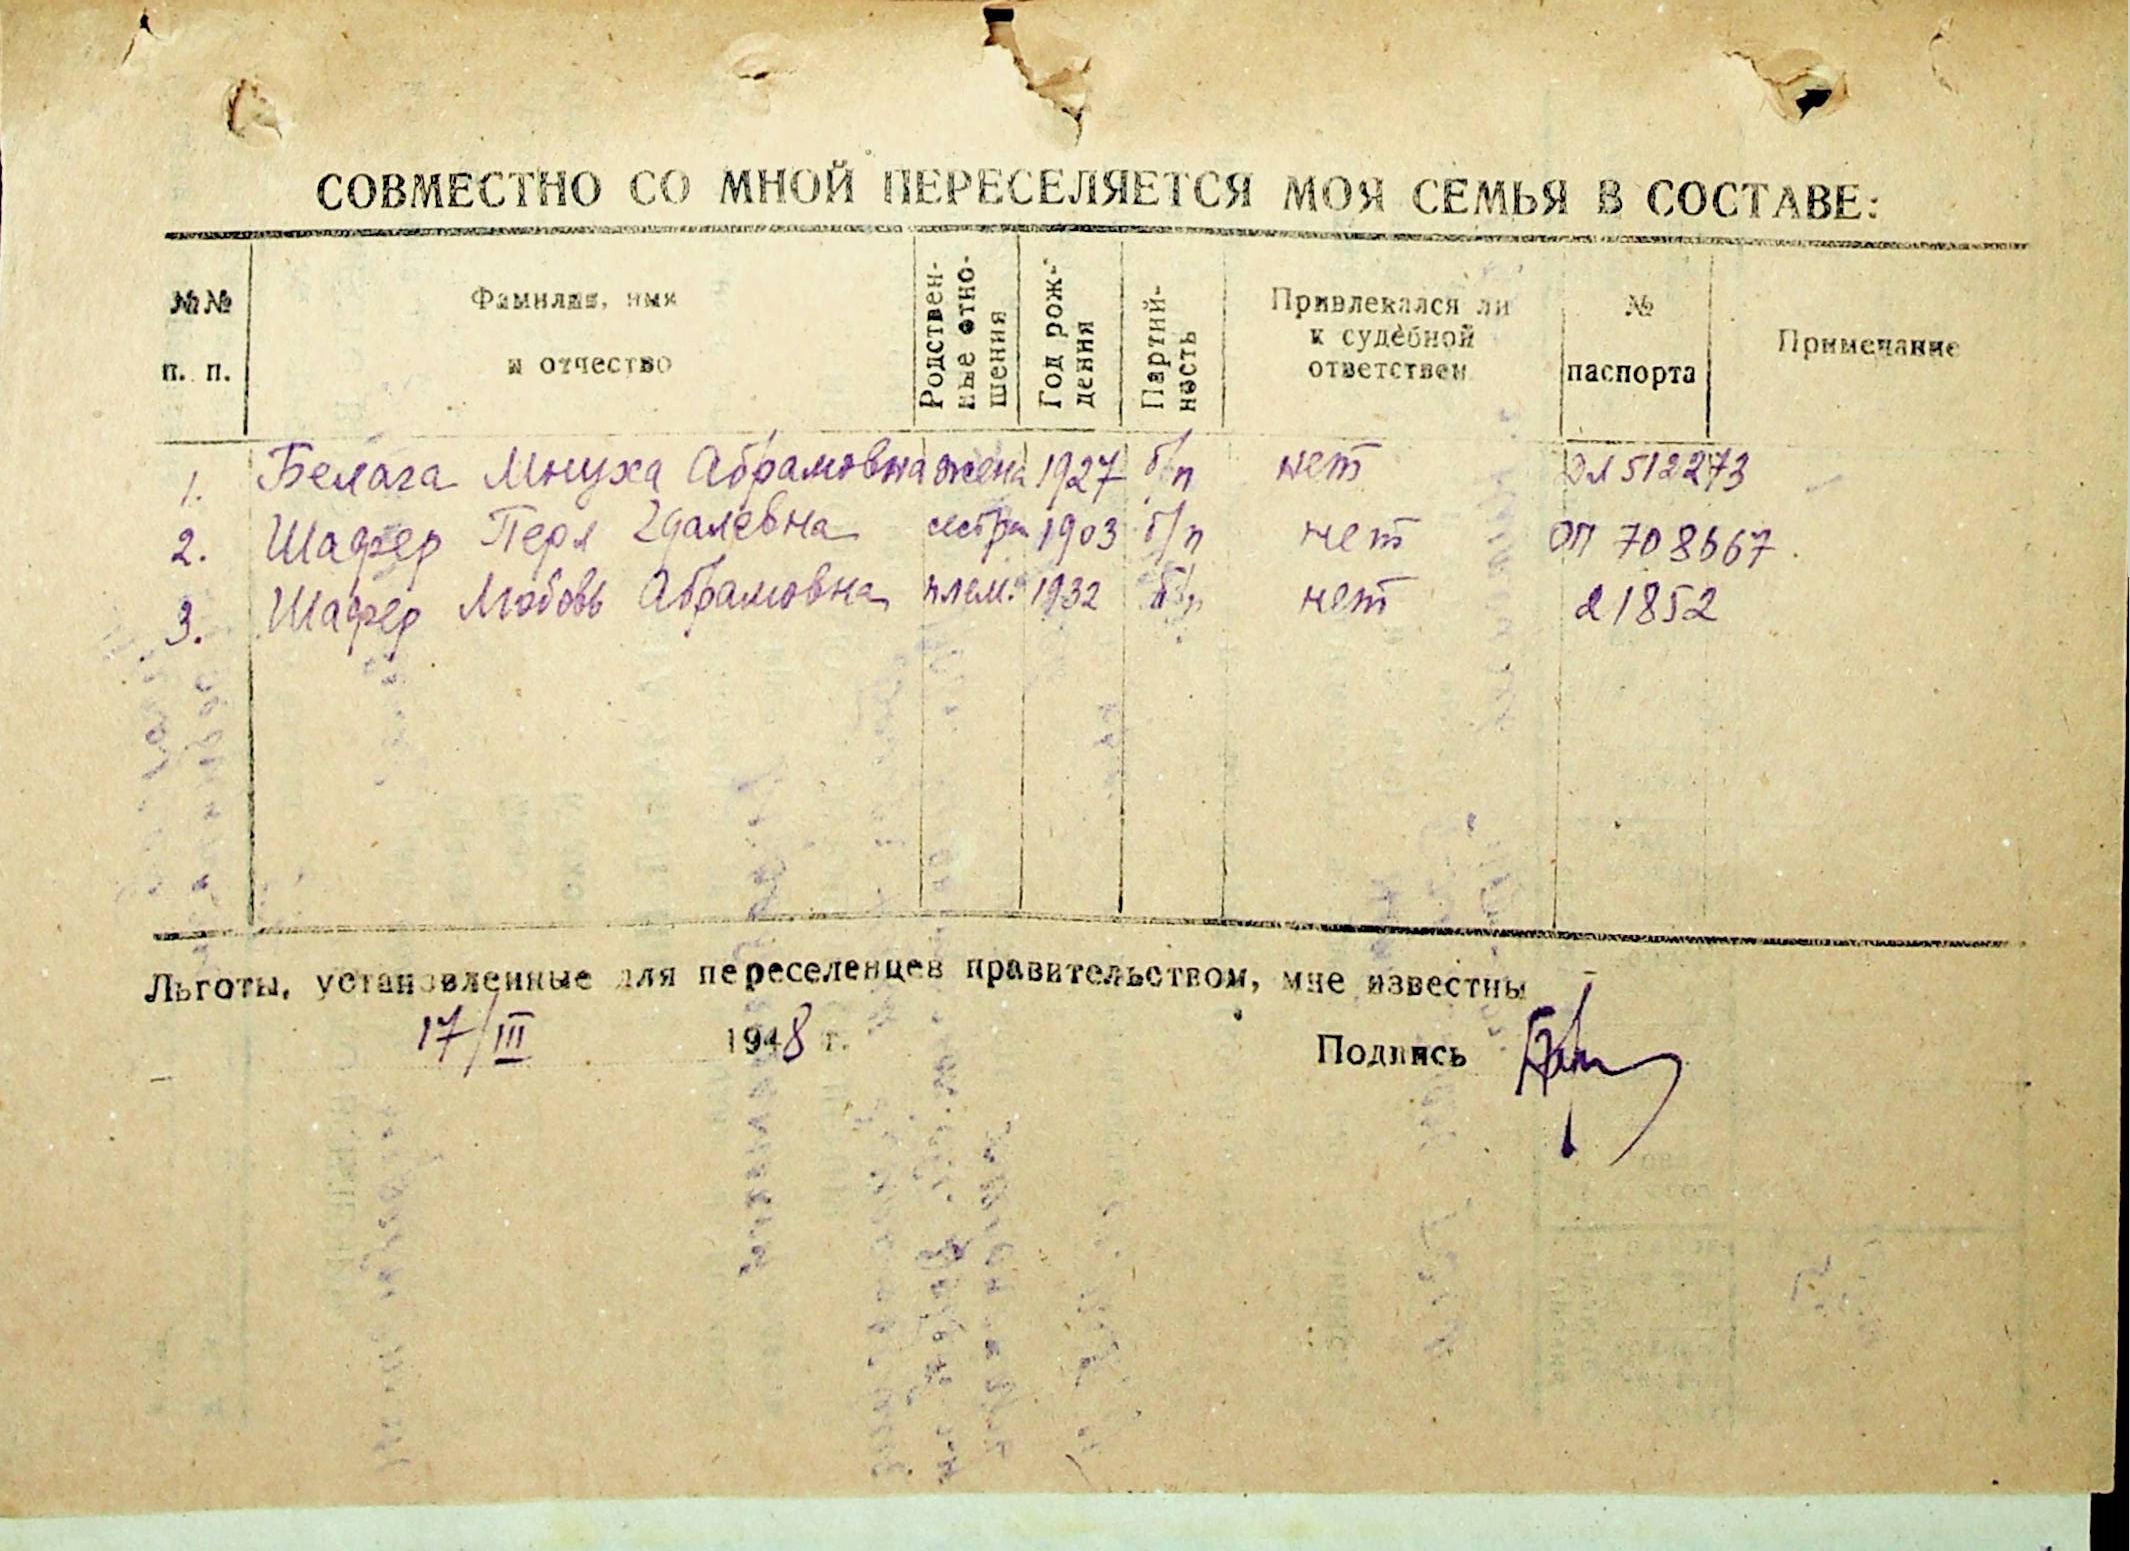 СОВМЕСТНО СО МНОЙ ПЕРЕСЕЛЯЕТСЯ МОЯ СЕМЬЯ В СОСТАВЕ:
№№ п. п. Фамилия, имя и отчество Родствен-ные отно-шения Год рож-дения Партий-ность Привлекался ли к судебной ответствен № паспорта Примечание
1. Белага Мнуха Абрамовна жена 1927 б/п нет 512273
2. Шафер Перл сестра 1903 б/п нет 708667
3. Шафер Любовь Абрамовна плем. 1932 б/п нет 21852
Льготы, установленные для переселенцев правительством, мне известны
17/III 1948 г. Подпись